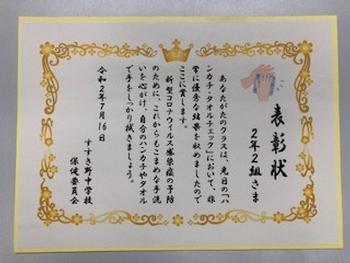 表彰状
2年2組さま
あなたがたのクラスは、先日の「ハ
ンカチ・タオルチェック」において、非
常に優秀な結果を収めましたので
ここに賞します。
新型コロナウイルス感染症の予防
のために、これからもこまめな手洗
いを心がけ、自分のハンカチやタオル
で手をしっかり拭きましょう。
令和2年7月16日
すすき野中学校
保健委員会